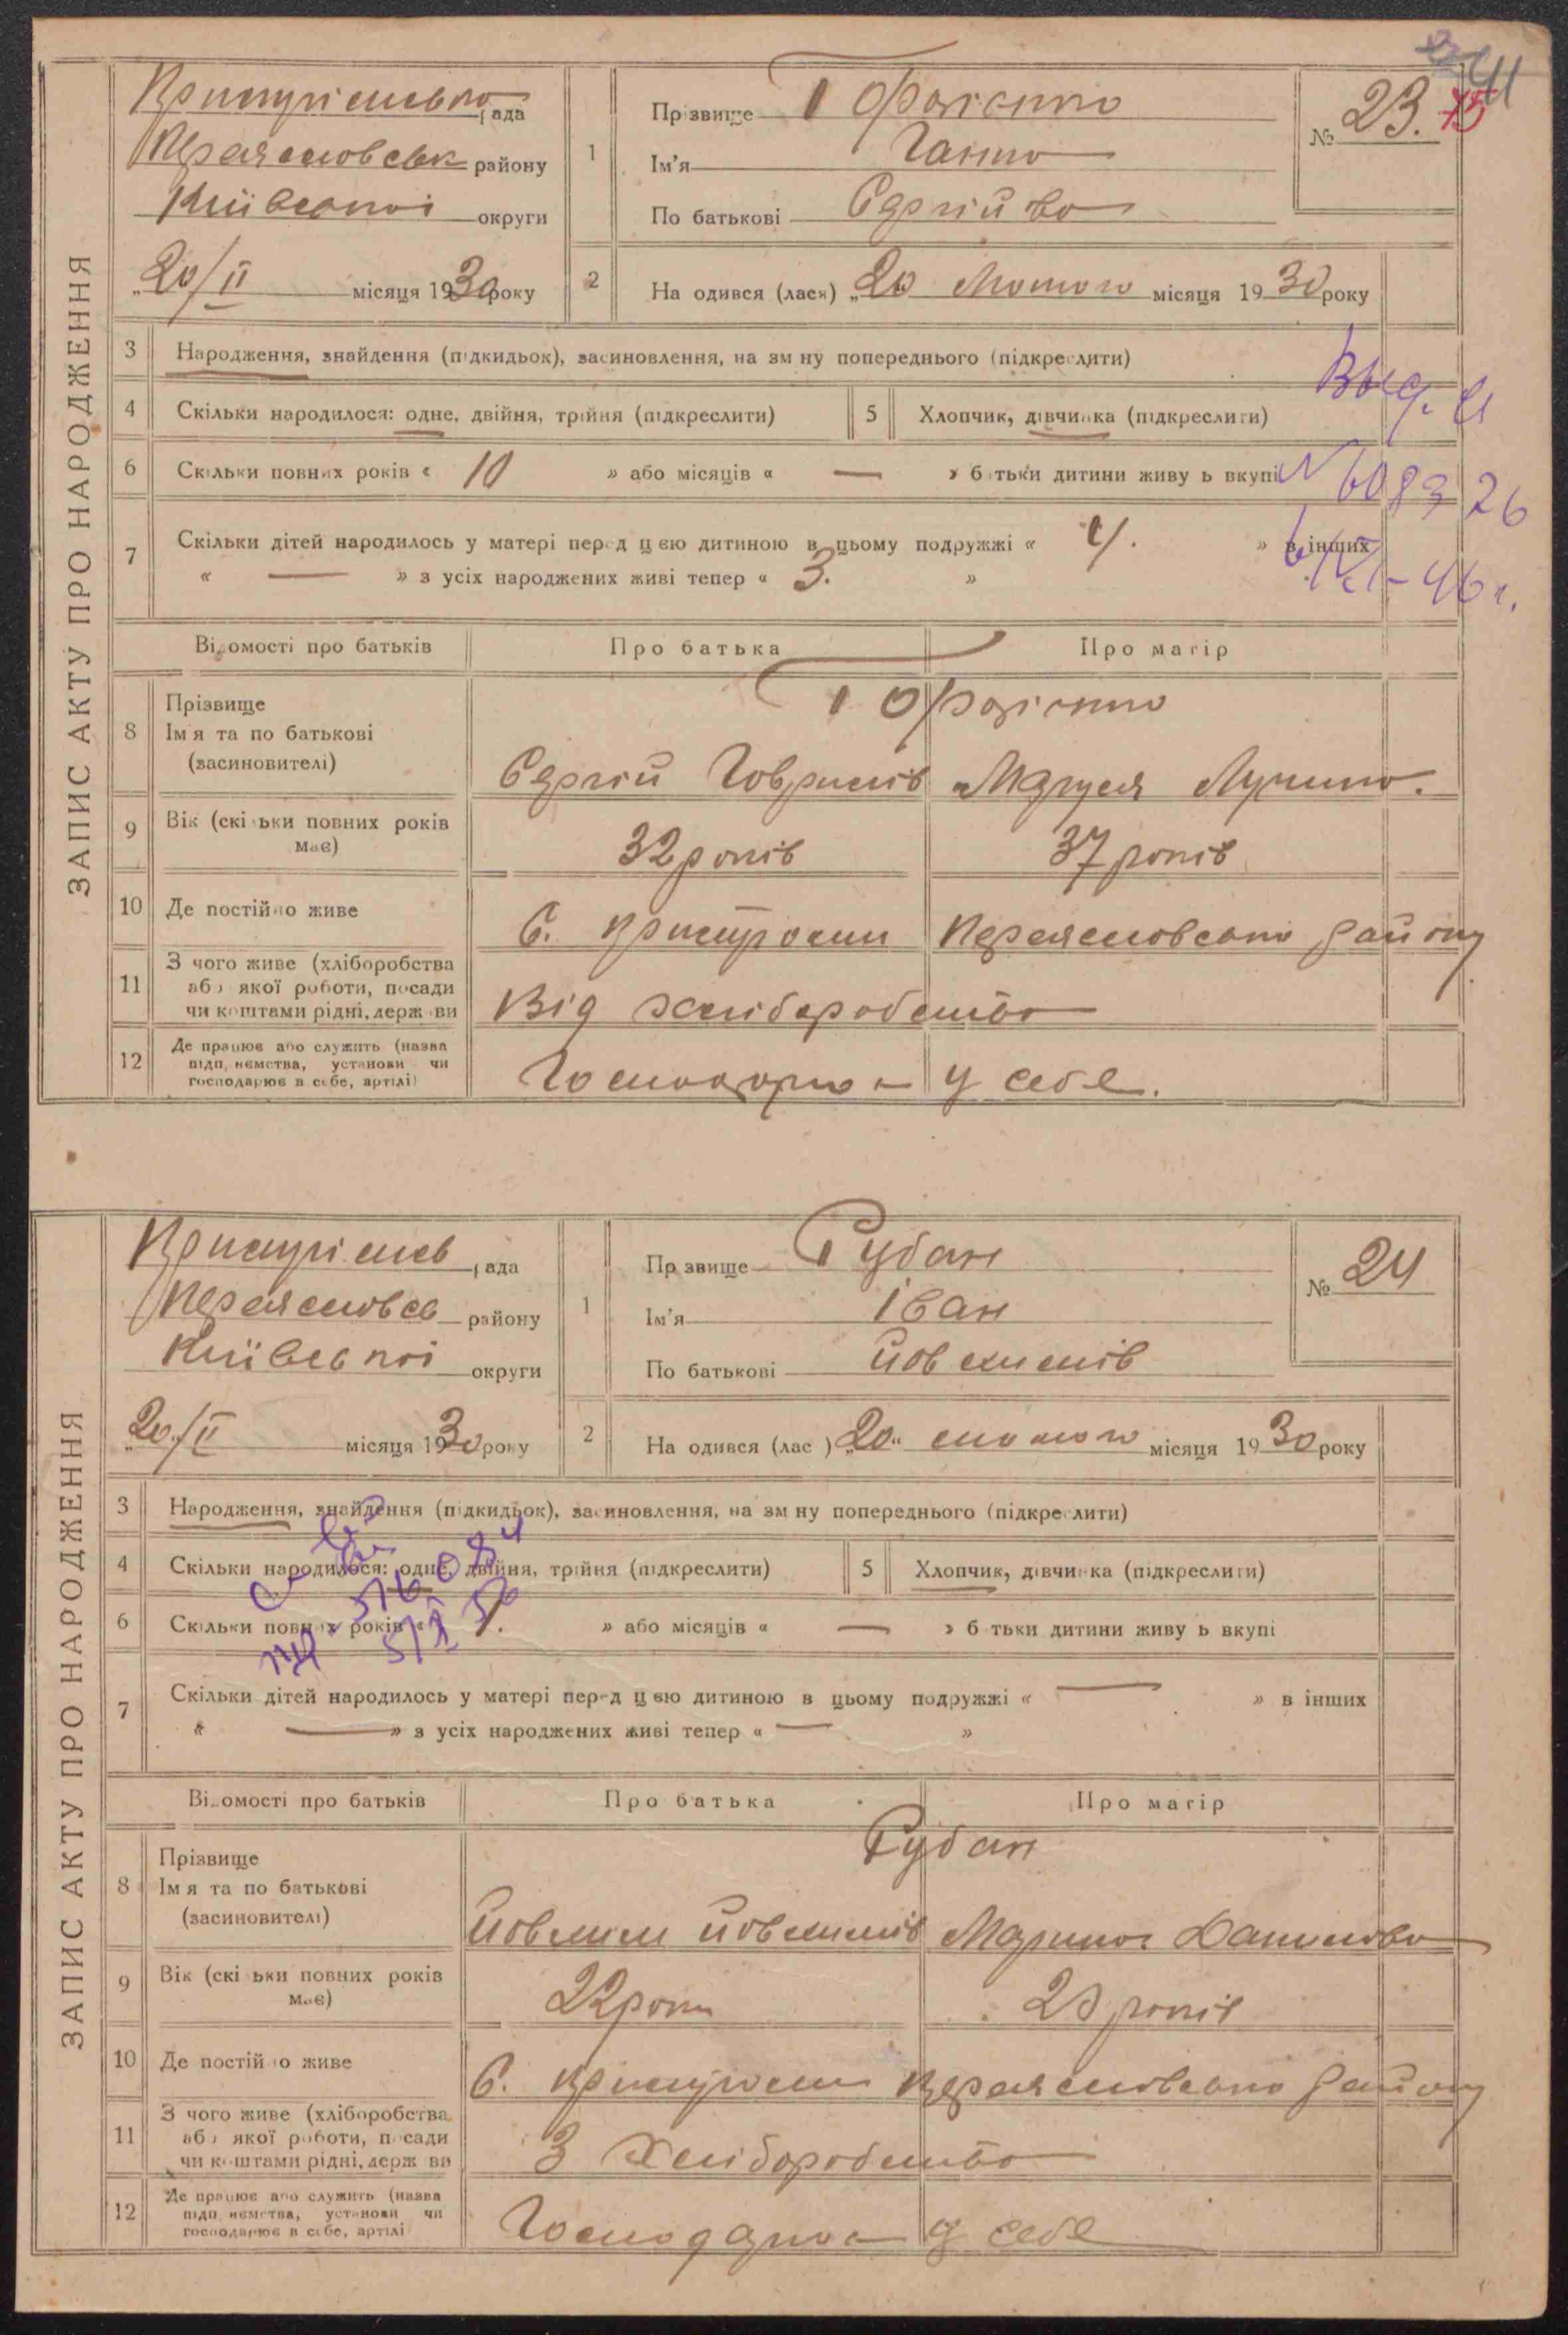 ЗАПИС АКТУ ПРО НАРОДЖЕННЯ
рада
Переяславськ району
Київської округи
„20/II місяця 1930 року
1
Прізвище
Ім'я Ганна
По батькові Сергійова
№ 23. 75
2
На одився (лася) „20 Лютого місяця 1930 року
3 Народження, знайдення (підкидьок), засиновлення, на зм ну попереднього (підкреслити)
4 Скільки народилося: одне, двійня, трійня (підкреслити)
5 Хлопчик, дівчинка (підкреслити)
6 Скільки повних років « 10 » або місяців « — » б тьки дитини живу ь вкупі
Выд. св
N 608326
6/VI-46 г.
7 Скільки дітей народилось у матері перед цією дитиною в цьому подружжі « 4. » в інших
« — » з усіх народжених живі тепер « 3. »
Відомості про батьків Про батька Про матір
8 Прізвище
Ім я та по батькові
(засиновителі)
Сергій Гаврилів Маруся Лукина.
9 Вік (скі ьки повних років має)
32 років 37 років
10 Де постійно живе
С. Пристроми Переяславсько району
11 З чого живе (хліборобства
або якої роботи, посади
чи коштами рідні, держ ви
Від хліборобства
12 Де працює або служить (назва
підп, иємства, установи чи
господарює в себе, артілі)
Господарює у себе.
ЗАПИС АКТУ ПРО НАРОДЖЕННЯ
рада
Переяславсь району
Київської округи
„20/II місяця 1930 року
1
Пр звище Рубан
Ім'я Іван
По батькові Йовхимів
№ 24
2
На одився (лас ) „20“ лютого місяця 1930 року
3 Народження, знайдення (підкидьок), засиновлення, на зм ну попереднього (підкреслити)
4 Скільки народилося: одне, двійня, трійня (підкреслити)
5 Хлопчик, дівчинка (підкреслити)
6 Скільки повних років « 1. » або місяців « — » б тьки дитини живу ь вкупі
7 Скільки дітей народилось у матері перед цією дитиною в цьому подружжі « — » в інших
« — » з усіх народжених живі тепер « — »
Відомості про батьків Про батька Про матір
8 Прізвище
Ім я та по батькові
(засиновителі)
Рубан
Йовхим Йовхимів Марина Данилова
9 Вік (скі ьки повних років має)
22 роки років
10 Де постій о живе
С. Пристроми Переяславсько району
11 З чого живе (хліборобства
або якої роботи, посади
чи коштами рідні, держ ви
З Хліборобства
12 Де працює або служить (назва
підп, иємства, установи чи
господарює в себе, артілі
Господарює у себе